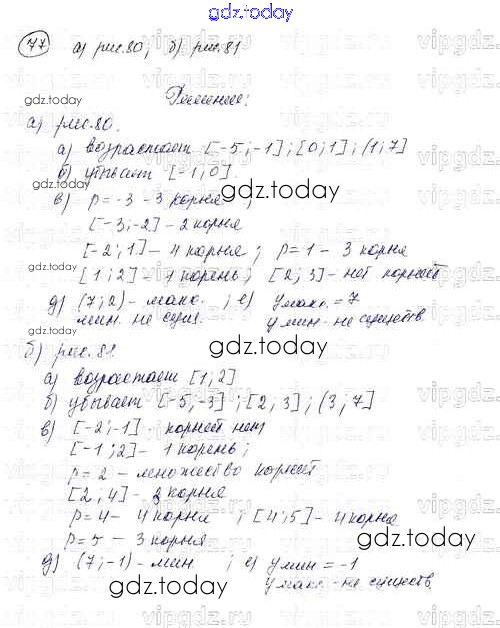 gdz.today
77 а) рис.80; б) рис.81
Решение:
gdz.today
а) рис.80.
а) возрастает [-5;-1]; [0;1]; (1;7]
б) убывает [-1;0].
в) p=-3 - 3 корня ;
gdz.today
[-3;-2] - 2 корня
[-2;1] - 4 корня ; p=1 - 3 корня
gdz.today
[1;2] - 1 корень; [2;3] - нет корней
д) (7;2) - макс. ; е) y макс. = 7
мин. не сущ. y мин - не существ.
gdz.today
б) рис.81.
а) возрастает [1;2]
б) убывает [-5;-3]; [2;3]; (3;7]
в) [-2;-1] - корней нет
[-1;2] - 1 корень;
gdz.today
p=2 - множество корней
[2;4] - 2 корня
gdz.today
p=4 - 4 корня ; [4;5] - 4 корня
p=5 - 3 корня
д) (7;-1) - мин ; е) y мин = -1
y макс - не существ.
gdz.today